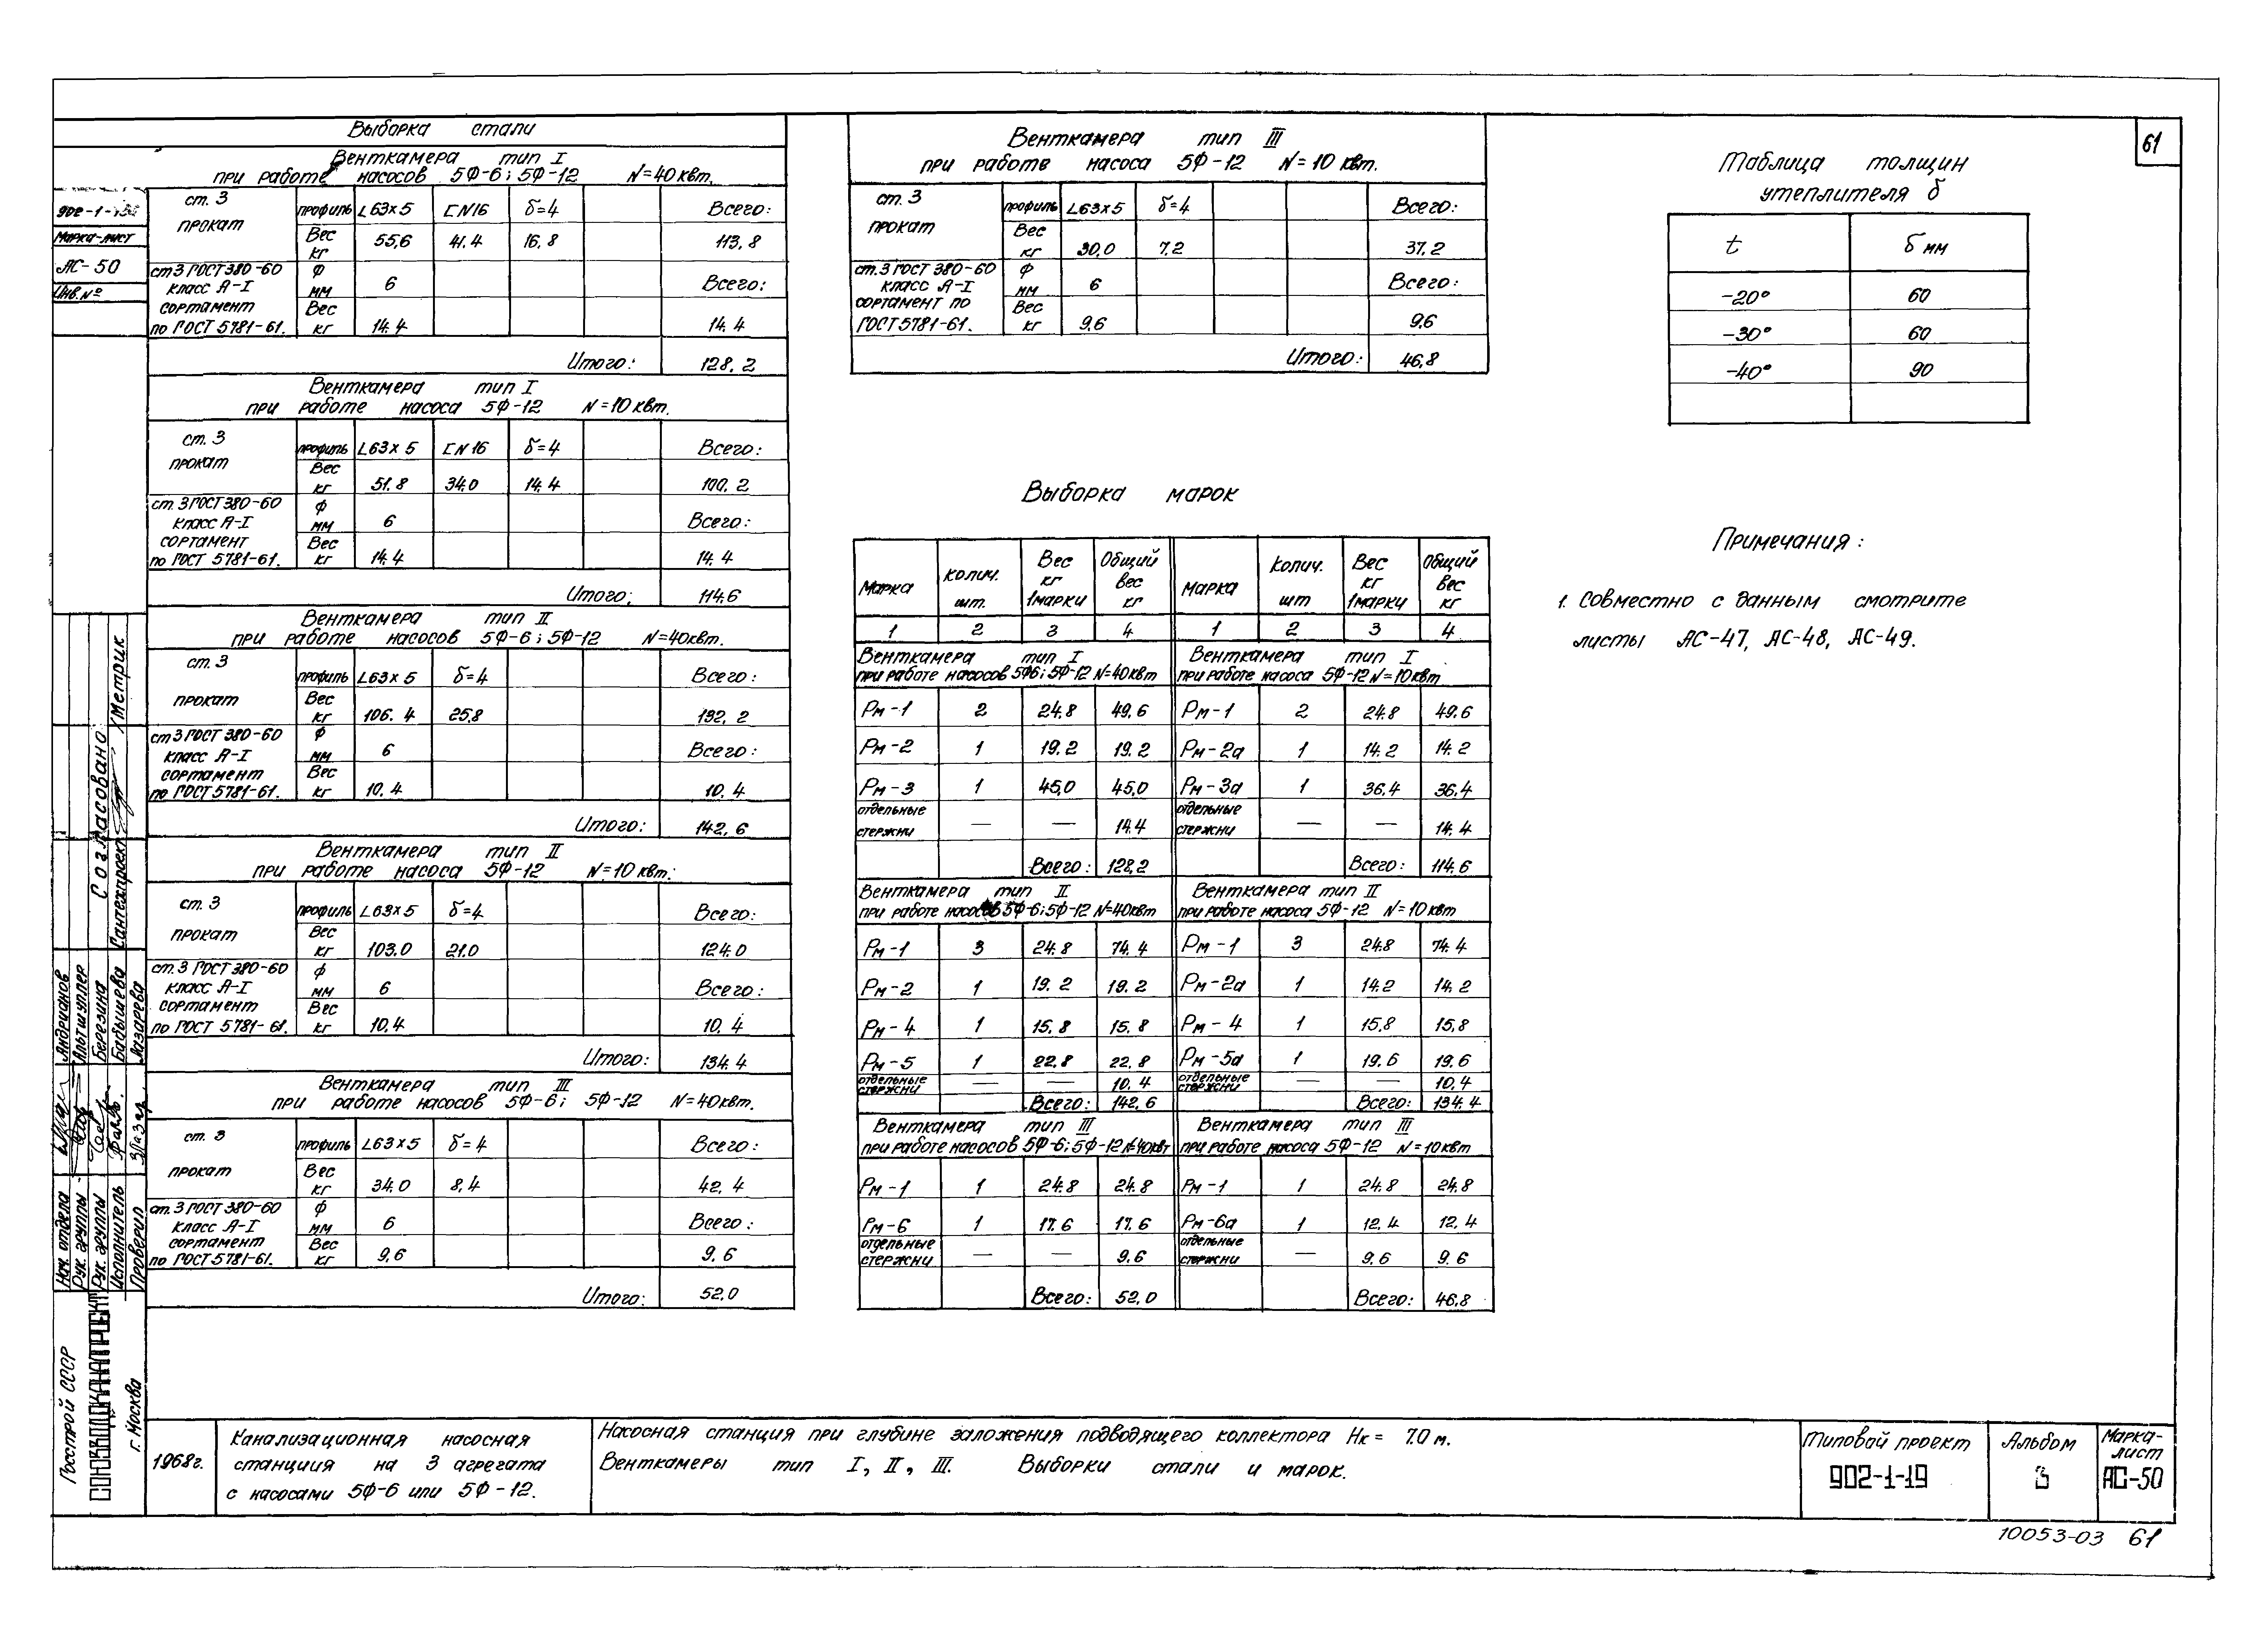 61
Выборка стали
Венткамера тип I
при работе насосов 5Ф-6; 5Ф-12 N=40квт.
ст. 3 прокат профиль L63x5 [N16 δ=4 Всего:
Вес кг 55,6 41.4 16,8 113,8
ст 3 ГОСТ 380-60 класс А-I Ф мм 6 Всего:
сортамент по ГОСТ 5781-61. Вес кг 14.4 14.4
Итого: 128.2
Венткамера тип I
при работе насоса 5Ф-12 N=10квт.
ст. 3 прокат профиль L63x5 [N16 δ=4 Всего:
Вес кг 51.8 34.0 14.4 100.2
ст. 3 ГОСТ 380-60 класс А-I Ф мм 6 Всего:
сортамент по ГОСТ 5781-61. Вес кг 14.4 14.4
Итого: 114.6
Венткамера тип II
при работе насосов 5Ф-6; 5Ф-12 N=40квт.
ст. 3 прокат профиль L63x5 δ=4 Всего:
Вес кг 106.4 25,8 132,2
ст 3 ГОСТ 380-60 класс А-I Ф мм 6 Всего:
сортамент по ГОСТ 5781-61. Вес кг 10.4 10.4
Итого: 142,6
Венткамера тип II
при работе насоса 5Ф-12 N=10квт.
ст. 3 прокат профиль L63x5 δ=4 Всего:
Вес кг 103.0 21.0 124.0
ст. 3 ГОСТ 380-60 класс А-I Ф мм 6 Всего:
сортамент по ГОСТ 5781-61. Вес кг 10.4 10.4
Итого: 134.4
Венткамера тип III
при работе насосов 5Ф-6; 5Ф-12 N=40квт.
ст. 3 прокат профиль L63x5 δ=4 Всего:
Вес кг 34.0 8,4 42.4
ст. 3 ГОСТ 380-60 класс А-I Ф мм 6 Всего:
сортамент по ГОСТ 5781-61. Вес кг 9,6 9.6
Итого: 52.0
Венткамера тип III
при работе насоса 5Ф-12 N=10 квт.
ст. 3 прокат профиль L63x5 δ=4 Всего:
Вес кг 30,0 7,2 37.2
ст. 3 ГОСТ 380-60 класс А-I Ф мм 6 Всего:
сортамент по ГОСТ 5781-61. Вес кг 9,6 9,6
Итого: 46,8
Выборка марок
Марка Колич. шт. Вес кг 1марки Общий вес кг Марка Колич. шт Вес кг 1марки Общий вес кг
1 2 3 4 1 2 3 4
Венткамера тип I Венткамера тип I
при работе насосов 5Ф6; 5Ф-12 N=40квт при работе насоса 5Ф-12 N=10квт
Рм-1 2 24.8 49,6 Рм-1 2 24.8 49.6
Рм-2 1 19.2 19.2 Рм-2а 1 14.2 14.2
Рм-3 1 45,0 45,0 Рм-3а 1 36.4 36.4
отдельные стержни — — 14.4 отдельные стержни — — 14.4
Всего: 128,2 Всего: 114.6
Венткамера тип II Венткамера тип II
при работе насосов 5Ф-6; 5Ф-12 N=40квт при работе насоса 5Ф-12 N=10квт
Рм-1 3 24.8 74.4 Рм-1 3 24.8 74.4
Рм-2 1 19.2 19.2 Рм-2а 1 14.2 14.2
Рм-4 1 15.8 15.8 Рм-4 1 15,8 15,8
Рм-5 1 22.8 22,8 Рм-5а 1 19.6 19.6
отдельные стержни — — 10.4 отдельные стержни — — 10,4
Всего: 142,6 Всего: 134.4
Венткамера тип III Венткамера тип III
при работе насосов 5Ф-6; 5Ф-12 N=40квт при работе насоса 5Ф-12 N=10квт
Рм-1 1 24.8 24.8 Рм-1 1 24.8 24.8
Рм-6 1 17.6 17.6 Рм-6а 1 12.4 12.4
отдельные стержни — — 9.6 отдельные стержни — 9.6 9.6
Всего: 52,0 Всего: 46,8
Таблица толщин
утеплителя δ
t δ мм
-20° 60
-30° 60
-40° 90
Примечания:
1. Совместно с данным смотрите
листы АС-47, АС-48, АС-49.
Марка-лист
АС-50
Инв. №
Согласовано:
Сантехпроект
Метрик
Нач. отдела Андрианов
Рук. группы Альтшуллер
Рук. группы Березина
Исполнитель Бабышева
Проверил Лазарева
Госстрой СССР
СОЮЗВОДОКАНАЛПРОЕКТ
г. Москва
1968г.
Канализационная насосная
станциия на 3 агрегата
с насосами 5Ф-6 или 5Ф-12.
Насосная станция при глубине заложения подводящего коллектора Нк= 7.0 м.
Венткамеры тип I, II, III. Выборки стали и марок.
Типовой проект
902-1-19
Альбом
3
Марка-лист
АС-50
10053-03 61